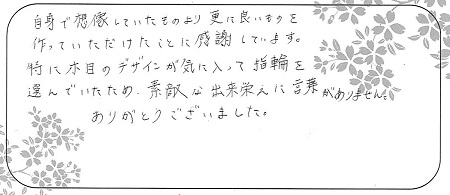 自身で想像していたものより更に良いものを
作っていただけたことに感謝しています。
特に木目のデザインが気に入って指輪を
選んでいたため、素敵な出来栄えに言葉がありません。
ありがとうございました。